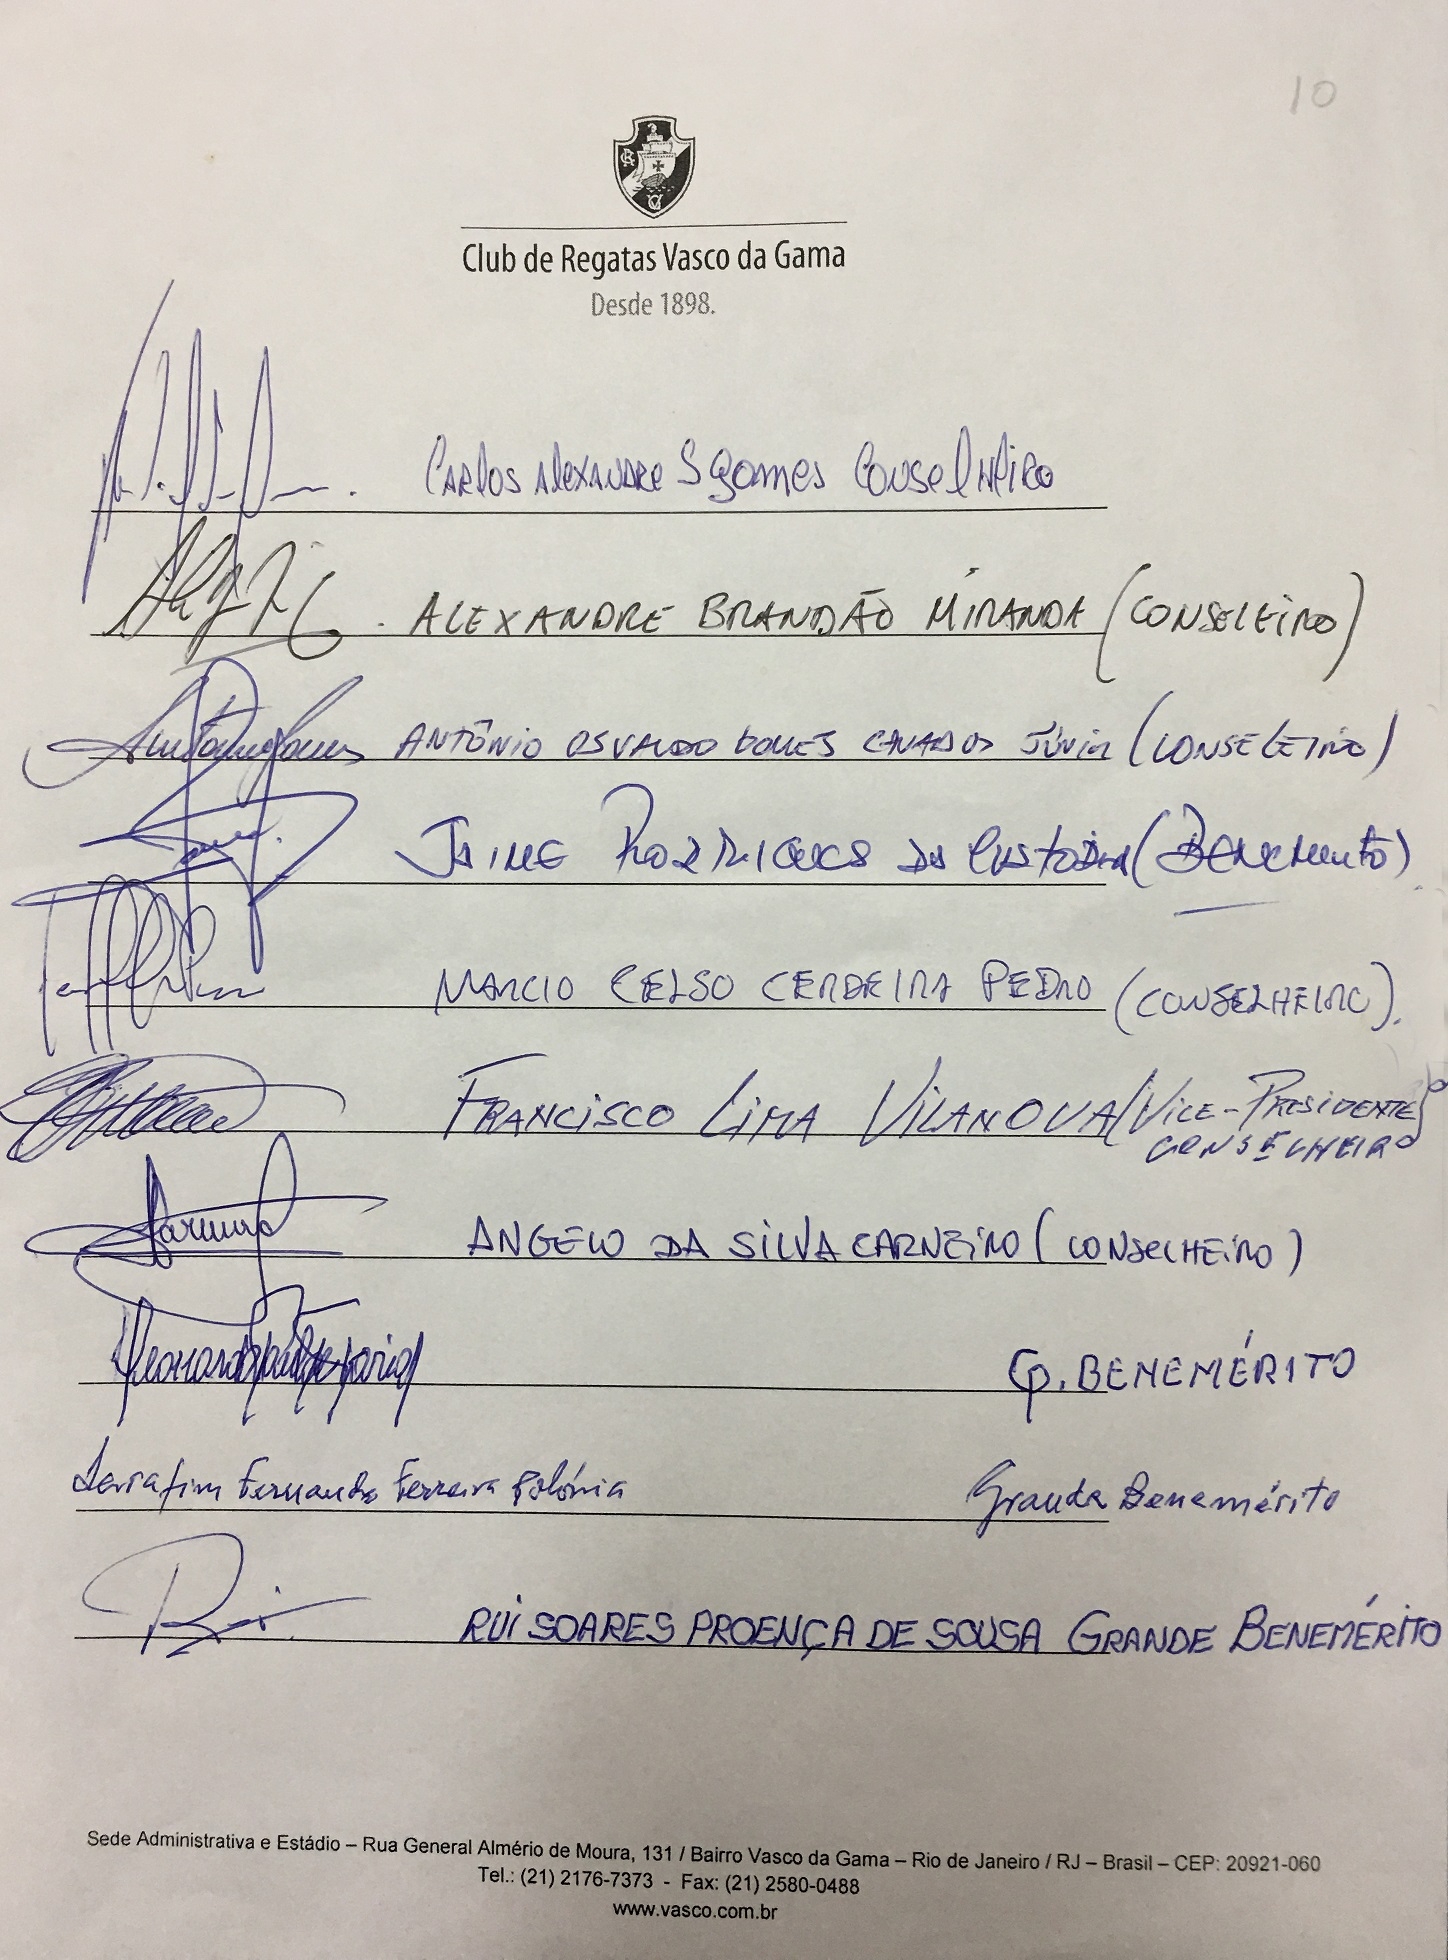 10
Club de Regatas Vasco da Gama
Desde 1898.
CARlOS AlEXANDRE S gomes ConselHEiRO
ALEXANDRE BRANDÃO MIRANDA (CONSELEIRO)
ANTÔNIO OSVALDO GOMES JÚNIOR (CONSELEIRO)
JAIME RODRIGUES DA CUSTODIA (BENEMERITO)
MARCIO CELSO CERDEIRA PEDRO (CONSELHEIRO).
FRANCISCO LIMA VILANOVA (VICE-PRESIDENTE)
CONSELHEIRO
ANGELO DA SILVA CARNEIRO (CONSELHEIRO)
G. BENEMÉRITO
Serafim Fernando Ferreira Polónia Grande Benemérito
Rui RUI SOARES PROENÇA DE SOUSA GRANDE BENEMÉRITO
Sede Administrativa e Estádio – Rua General Almério de Moura, 131 / Bairro Vasco da Gama – Rio de Janeiro / RJ – Brasil – CEP: 20921-060
Tel.: (21) 2176-7373 - Fax: (21) 2580-0488
www.vasco.com.br